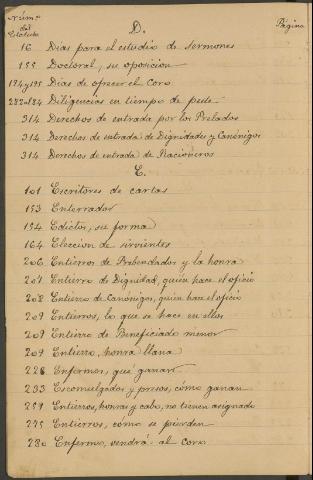 Núm.º
del
Estatuto
Página
D.
16 Dias para el estudio de sermones
155 Doctoral, su oposicion
194 y 195 Dias de ofrecer el Coro
282 al 284 Diligencias en tiempo de peste
314 Derechos de entrada por los Prelados
314 Derechos de entrada de Dignidades y Canónigos
314 Derechos de entrada de Racioneros
E.
101 Escritores de cartas
153 Enterrador
154 Edictos, su forma
164 Eleccion de sirvientes
206 Entierros de Prebendados y la honra
207 Entierro de Dignidad, quién hace el oficio
208 Entierro de Canónigos, quién hace el oficio
209 Entierros, lo que se hace en ellos
209 Entierro de Beneficiado menor
209 Entierro, honra llana
228 Enfermos, qué ganan
233 Escomulgados y presos, cómo ganan
259 Entierros, honras y cabo, no tienen asignado
275 Entierros, cómo se pierden
280 Enfermo, vendrá al coro